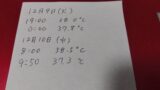 12月9日(火)
19:00 38.0℃
0:00 37.8℃
12月10日(水)
8:00 38.5℃
9:50 37.3℃